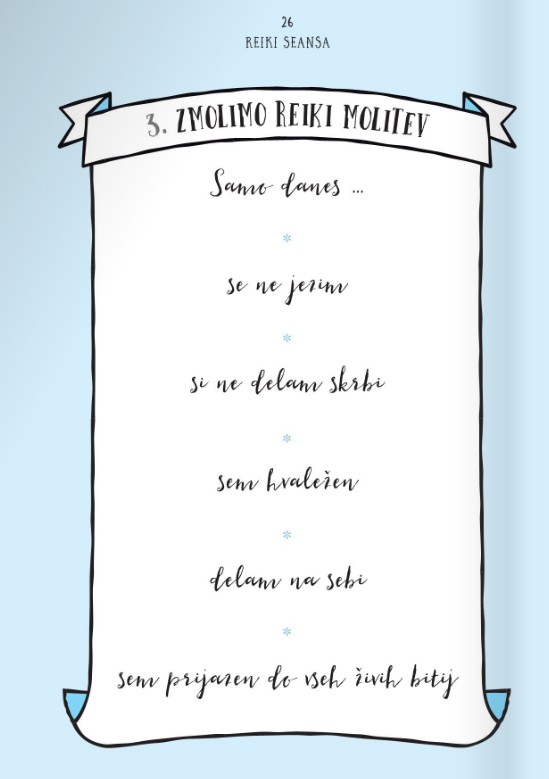 26
REIKI SEANSA
3. ZMOLIMO REIKI MOLITEV
Samo danes ...
se ne jezim
si ne delam skrbi
sem hvaležen
delam na sebi
sem prijazen do vseh živih bitij